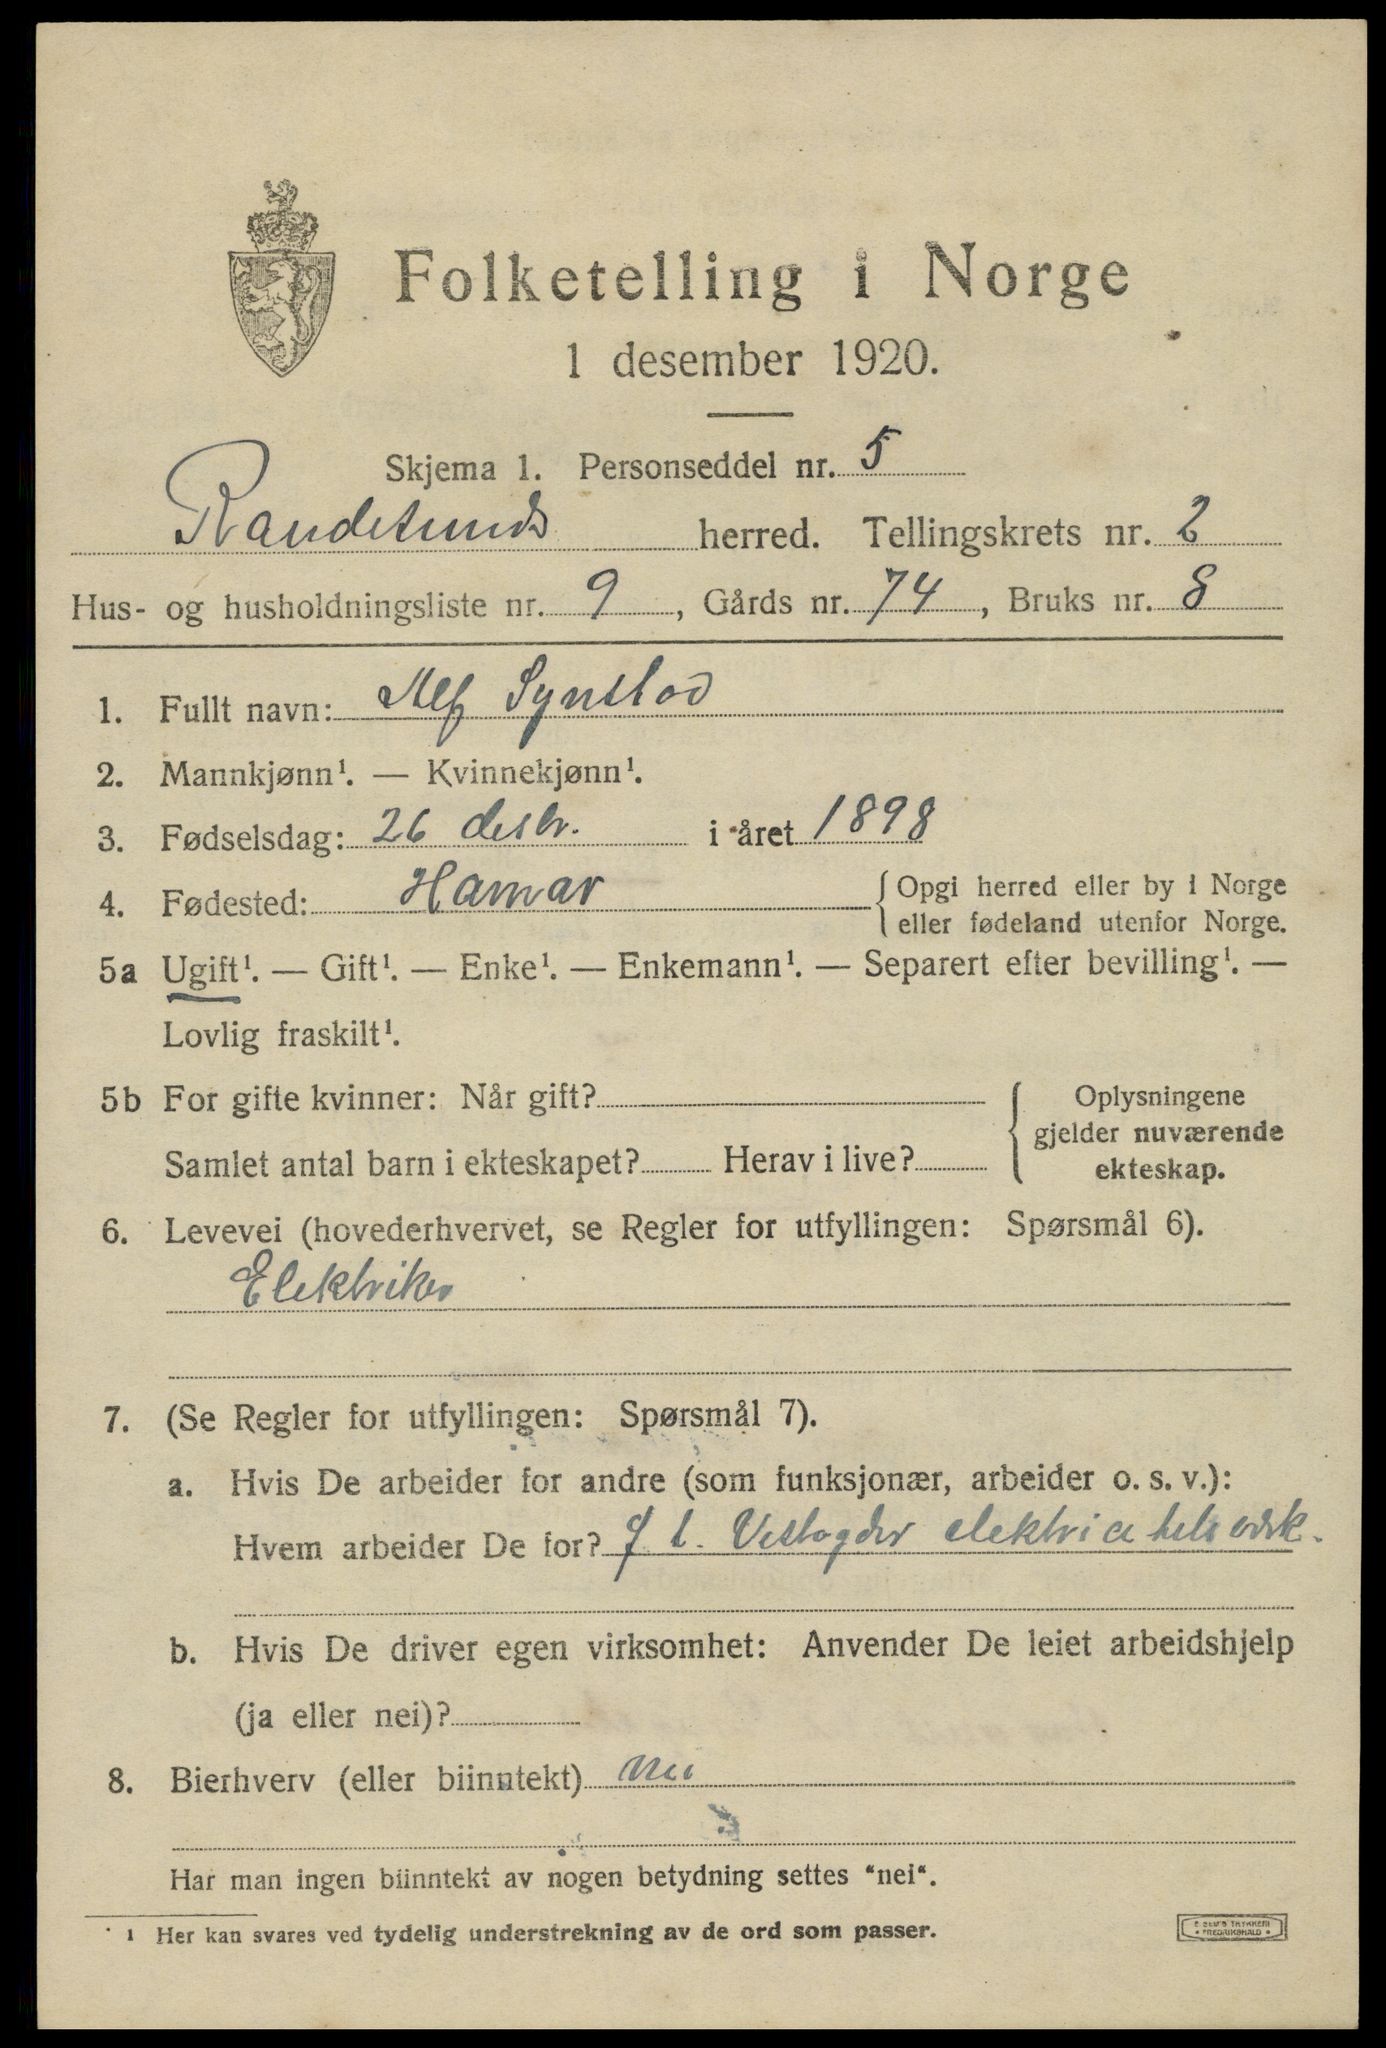 Folketelling i Norge
1 desember 1920.
Skjema 1. Personseddel nr. 5
Randesunds herred. Tellingskrets nr. 2
Hus- og husholdningsliste nr. 9, Gårds nr. 74, Bruks nr. 8
1. Fullt navn: Alf Synstad
2. Mannkjønn¹. — Kvinnekjønn¹.
3. Fødselsdag: 26 desbr. i året 1898
4. Fødested: Hamar {Opgi herred eller by i Norge
eller fødeland utenfor Norge.
5a Ugift¹. — Gift¹. — Enke¹. — Enkemann¹. — Separert efter bevilling¹. —
Lovlig fraskilt¹.
5b For gifte kvinner: Når gift? { Oplysningene
gjelder nuværende
Samlet antal barn i ekteskapet? Herav i live?
ekteskap.
6. Levevei (hovederhvervet, se Regler for utfyllingen: Spørsmål 6).
Elektriker
7. (Se Regler for utfyllingen: Spørsmål 7).
a. Hvis De arbeider for andre (som funksjonær, arbeider o. s. v.):
Hvem arbeider De for? f t. Vestagder elektricitetsverk.
b. Hvis De driver egen virksomhet: Anvender De leiet arbeidshjelp
(ja eller nei)?
8. Bierhverv (eller biinntekt) nei
Har man ingen biinntekt av nogen betydning settes "nei".
¹ Her kan svares ved tydelig understrekning av de ord som passer.
E. SEM'S TRYKKERI
• FREDRIKSHALD •